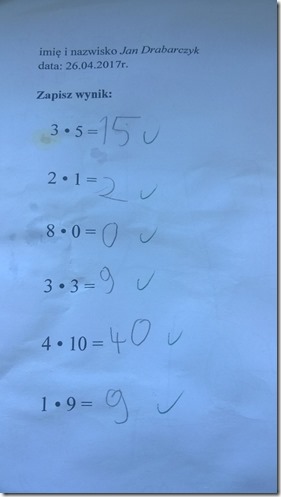 imię i nazwisko Jan Drabarczyk
data: 26.04.2017r.
Zapisz wynik:
3 • 5 = 15 ✓
2 • 1 = 2 ✓
8 • 0 = 0 ✓
3 • 3 = 9 ✓
4 • 10 = 40 ✓
1 • 9 = 9 ✓